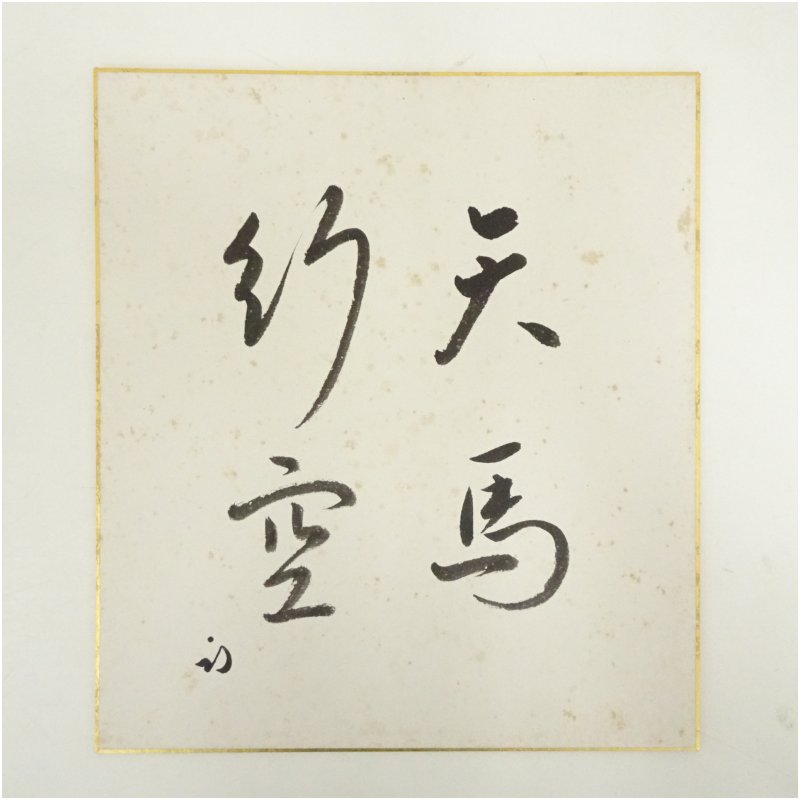 天馬
行空